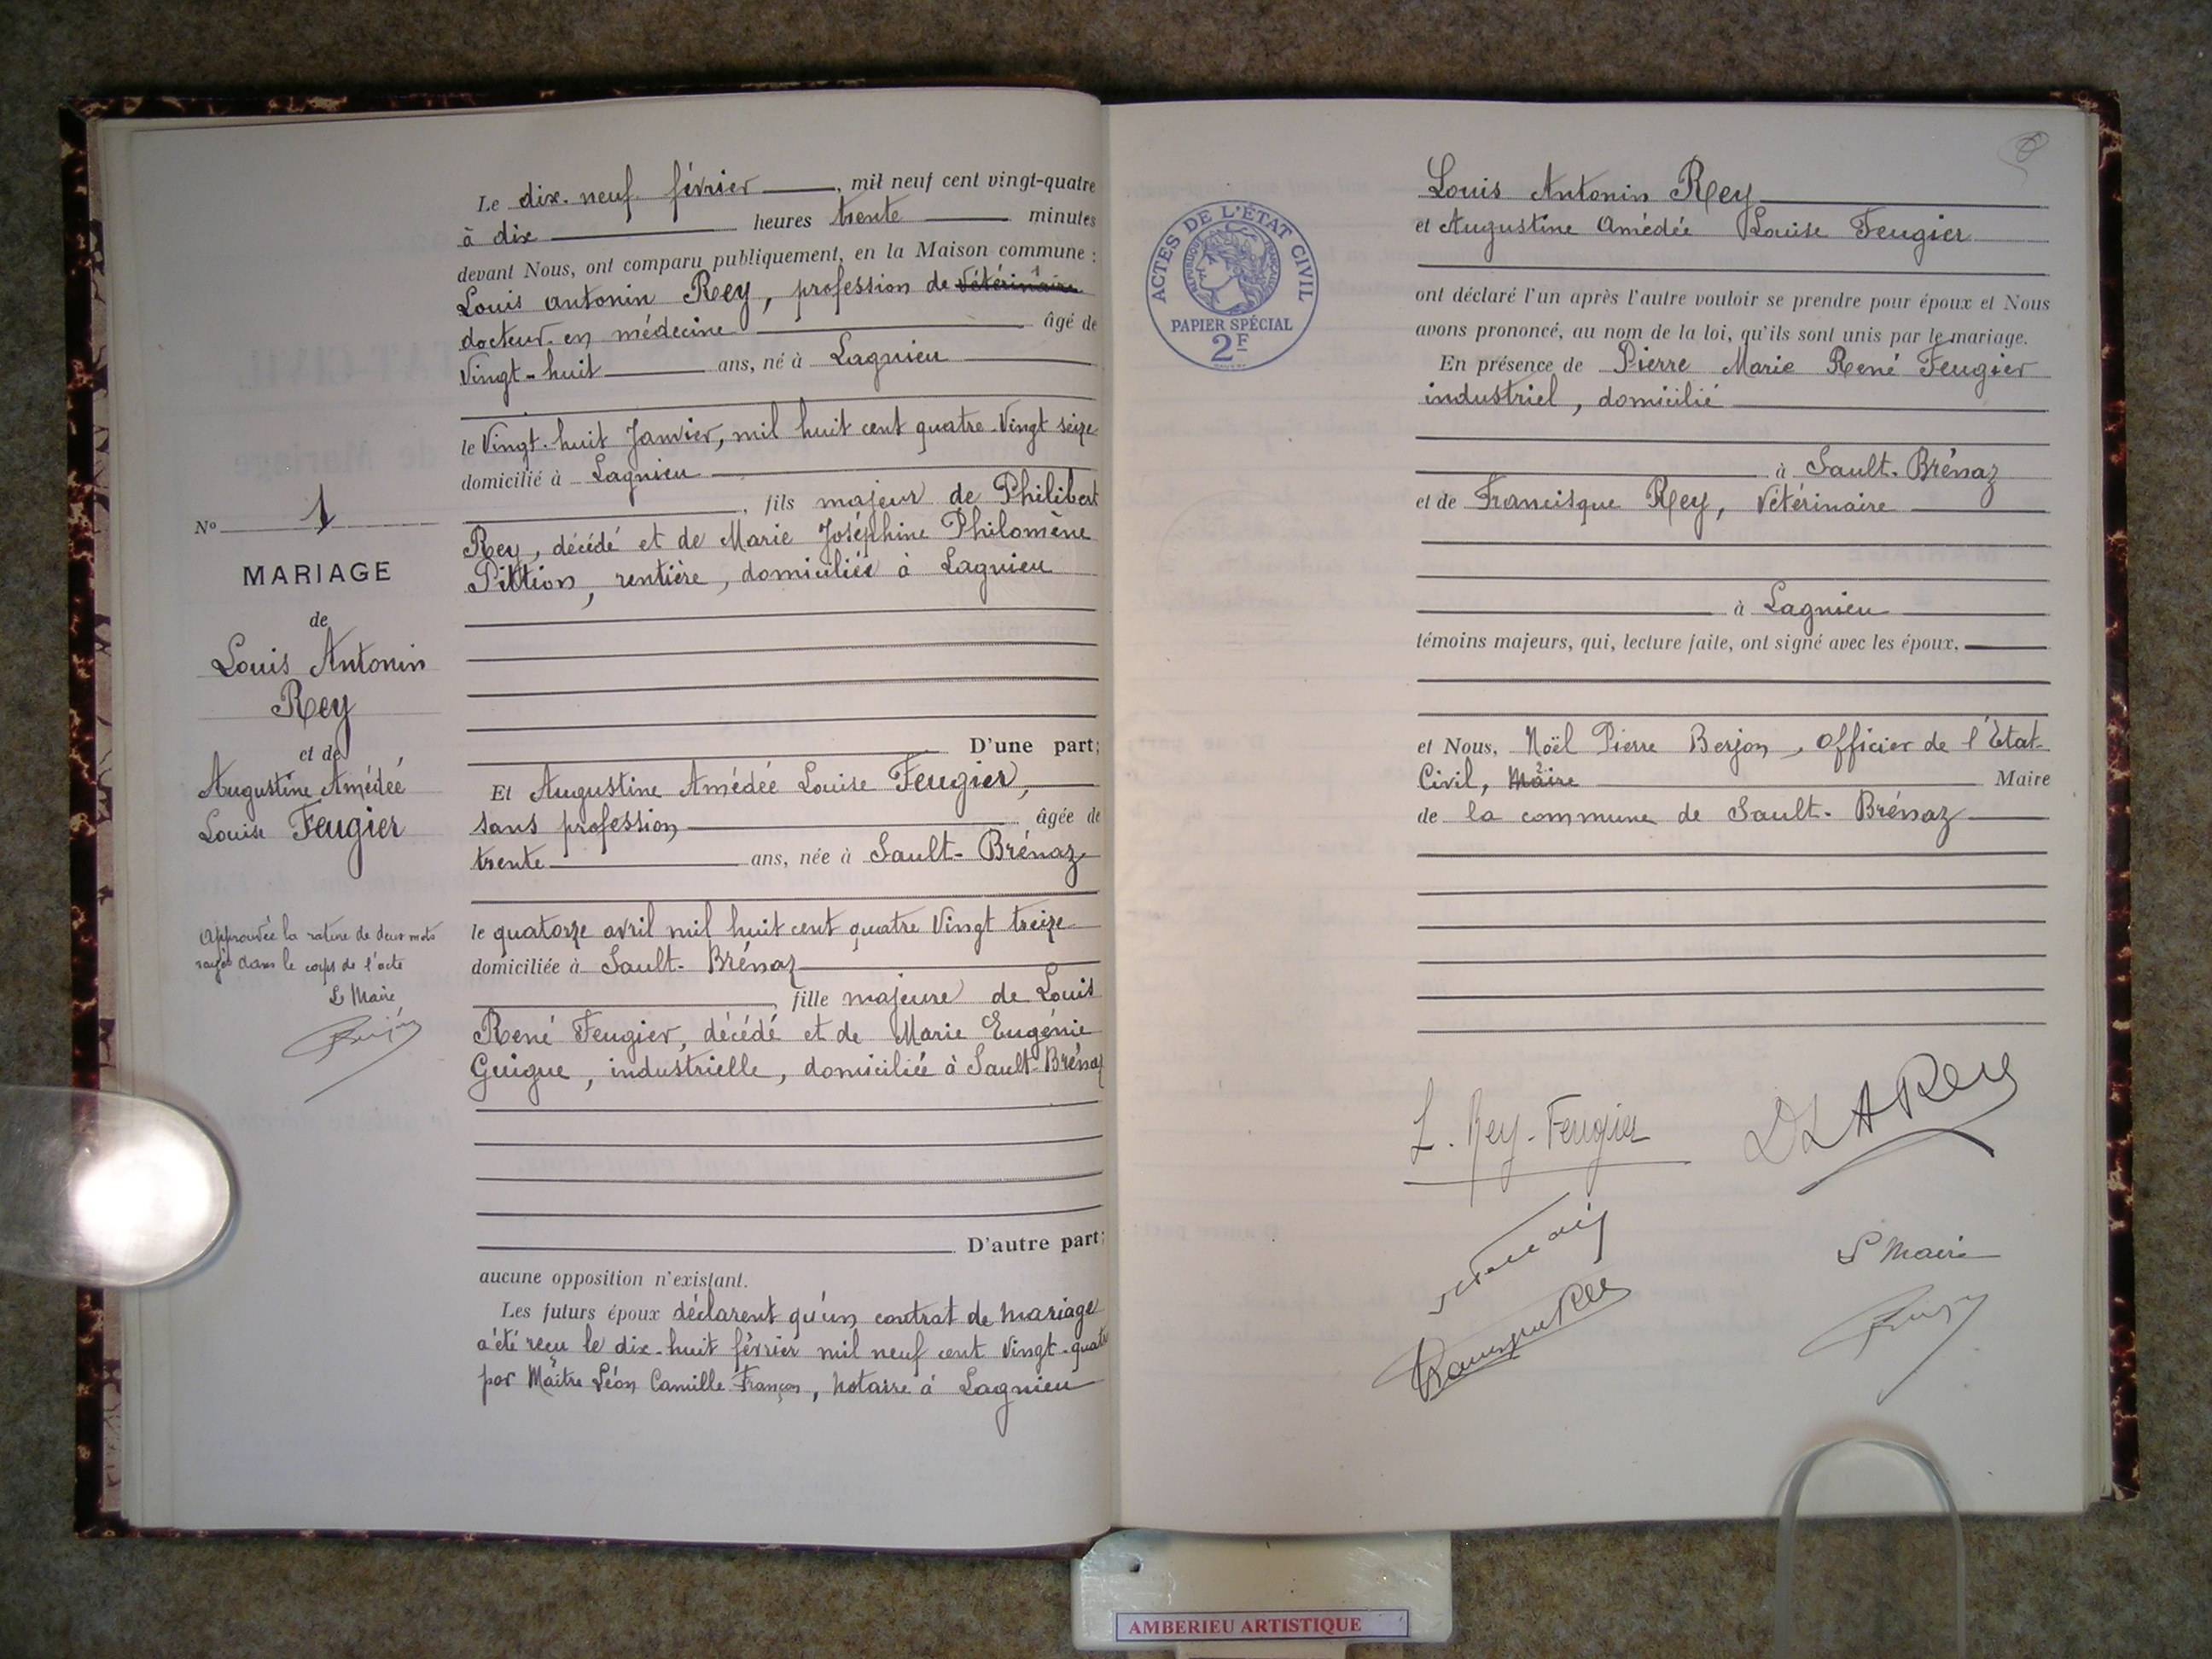 Le dix-neuf février, mil neuf cent vingt-quatre
à dix heures trente minutes
devant Nous, ont comparu publiquement, en la Maison commune :
Louis Antonin Rey, profession de vétérinaire
docteur en médecine âgé de
Vingt-huit ans, né à Lagnieu
le Vingt-huit Janvier, mil huit cent quatre-Vingt seize
domicilié à Lagnieu
, fils majeur de Philibert
Rey, décédé et de Marie Joséphine Philomène
Pittion, rentière, domiciliée à Lagnieu
D'une part;
Et Augustine Amédéé Louise Feugier,
sans profession âgée de
trente ans, née à Sault-Brénaz
le quatorze avril mil huit cent quatre Vingt treize
domiciliée à Sault-Brénaz
, fille majeure de Louis
René Feugier, décédé et de Marie Eugénie
Guigue, industrielle, domiciliée à Sault-Brénaz
D'autre part:
aucune opposition n'existant.
Les futurs époux déclarent qu'un contrat de mariage
a été reçu le dix-huit février mil neuf cent Vingt-quatre
par Maître Léon Camille François, notaire à Lagnieu
No 1
MARIAGE
de
Louis Antonin
Rey
et de
Augustine Amédéé
Louise Feugier
Approuvée la rature de deux mots
rayés dans le corps de l'acte
Le Maire
ACTES DE L'ÉTAT CIVIL
RÉPUBLIQUE FRANÇAISE
PAPIER SPÉCIAL
2F
Louis Antonin Rey
et Augustine Amédéé Louise Feugier
ont déclaré l'un après l'autre vouloir se prendre pour époux et Nous
avons prononcé, au nom de la loi, qu'ils sont unis par le mariage.
En présence de Pierre Marie René Feugier
industriel, domicilié
à Sault-Brénaz
et de Francisque Rey, Vétérinaire
à Lagnieu
témoins majeurs, qui, lecture faite, ont signé avec les époux.
et Nous, Noël Pierre Berjon, Officier de l'Etat-
Civil, Maire Maire
de la commune de Sault-Brénaz
L. Rey-Feugier
D L A Rey
Le Maire
AMBERIEU ARTISTIQUE